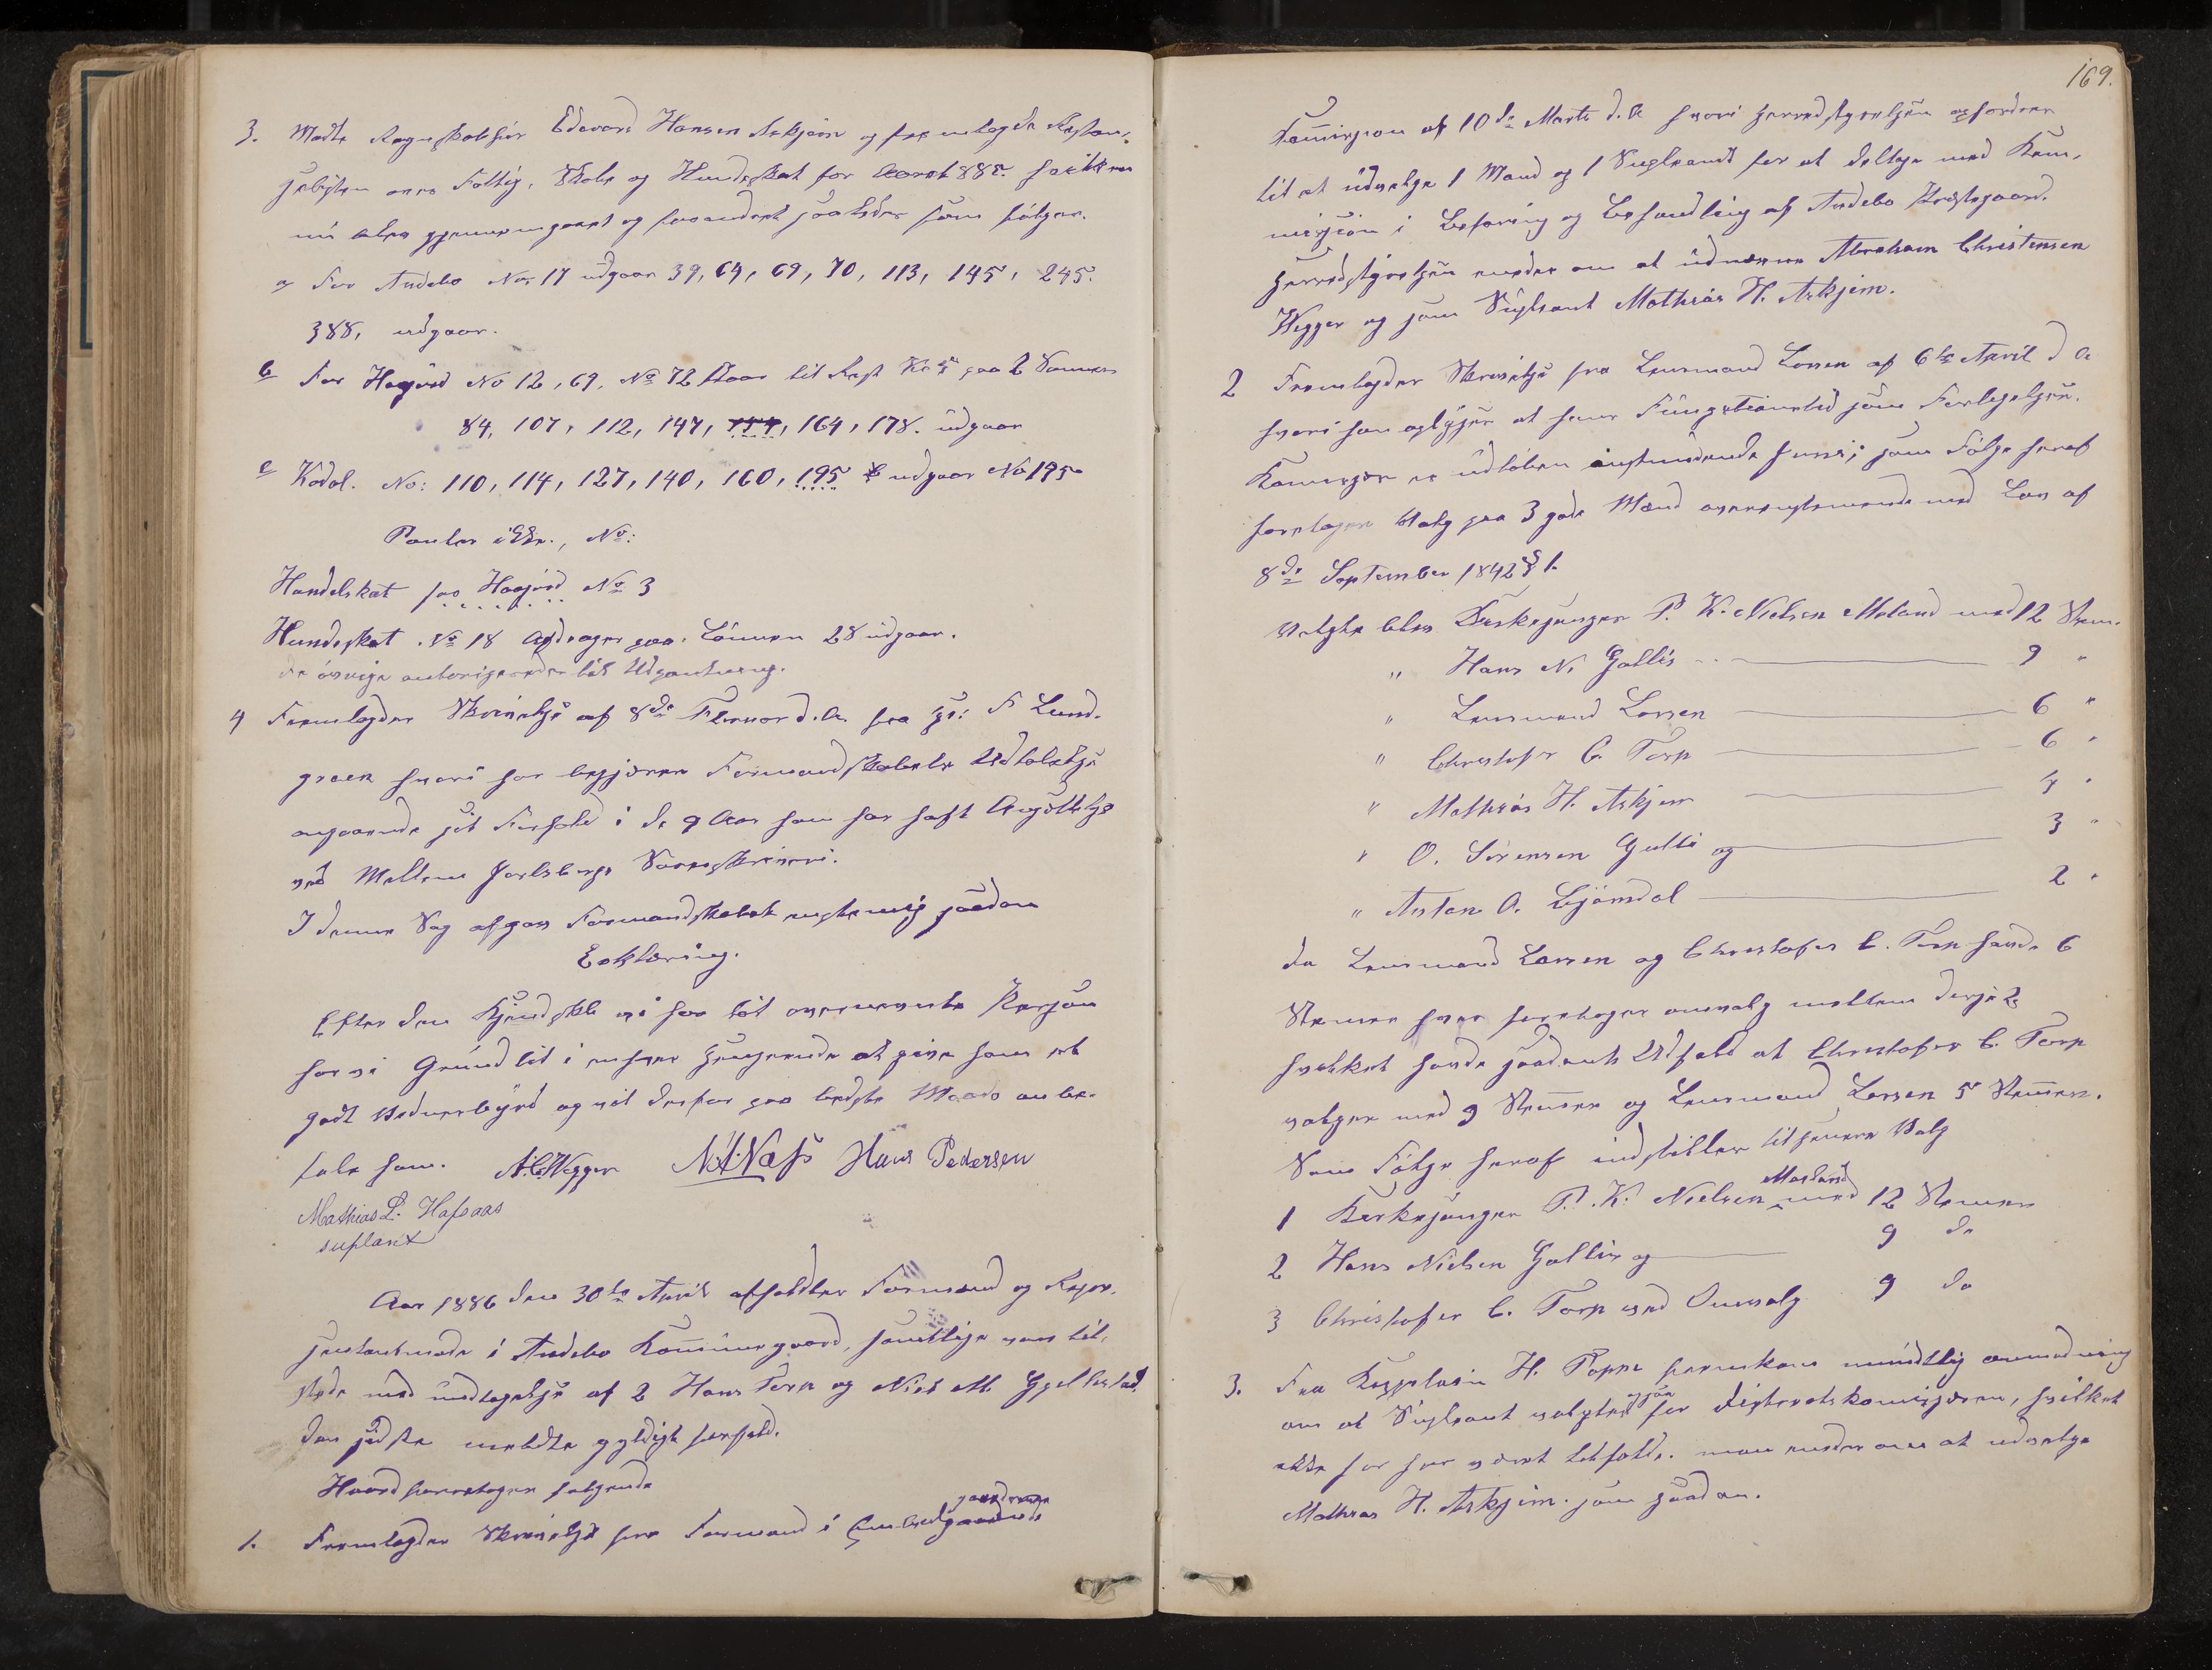 3. Mødte Regnskabsfører Edevard Hansen Askjem og fremlagde Restan-
selisten over Fattig, Skole og Hundeskat for Aaret 1885 hvilken
nu blev gjennemgaaet og forandret saaledes som følger.
a For Andebo No 17 udgaar 39, 64, 69, 70, 113, 145, 245.
388, udgaar.
b For Høyord No 12, 69, No 72 staar til Rest Kr 5 paa 2 Sammen
84, 107, 112, 147, 154, 164, 178. udgaar
c Kodal. No: 110, 114, 127, 140, 160, 195 udgaar No 195
Panter No:
Hundeskat fra Høyord No 3
Hundeskat No 18 Andrages paa Lønnen 28 udgaar.
de øvrige autoriseredes til Udpantning.
4 Fremlagdes Skrivelse af 8de Februar d.A. fra hr: F Lund-
green hvori han begjærer Formandskabets Udtalelse
angaaende sit Forhold i de 9 Aar han har haft Ansættelse
ved Mellem Jarlsbergs Sorenskriveri.
I denne Sag afgav Formandskabet enstemig saadan
Erklæring.
Efter den Kjendskab vi har til overnevnte Person
har vi Grund til i enhver Henseende at give ham et
godt Vidnesbyrd og vil derfor paa bedste Maade anbe-
fale ham. A. C. Vegger N. A. Næss Hans Pedersen
Mathias L. Hafsaas
suplant
Aar 1886 den 30te April afholdtes Formand og Repre-
sentantmøde i Andebo Kommunegaard, samtlige var til-
stede med undtagelse af 2 Hans Torp og Niels M. Gjelstad
den sidste meldte gyldigt forfald.
Hvord foretoges følgende
1. Fremlagdes Skrivelse fra Formand i Embedsgaards
169.
Kommission af 10de Marts d.A. hvori Herredstyrelsen opfordres
til at udvælge 1 Mand og 1 Supleant for at deltage med Kom-
mission i Befaring og Behandling af Andebo Præstegaard.
Herredstyrelsen enedes om at udnævne Abraham Christensen
Vegger og som Suplant Mathias H. Askjem.
2 Fremlagdes Skrivelse fra Lensmand Larsen af 6te April d A
hvori han oplyser at hans Fungtionstid som Forligelses-
Komisær er udløben instundende Juni; som Følge heraf
foretages Valg paa 3 gode Mænd overensstemmende med Lov af
8de September 1842 § 1.
Valgte blev Kirkesanger P. K. Nielsen Møland med 12 Stem.
" Hans N. Gallis 9 "
" Lensmand Larsen 6 "
" Christofer C. Torp 6 "
" Mathias H. Askjem 4 "
" O. Sørensen Gulli og 3 "
" Anton A. Bjørndal 2 "
da Lensmand Larsen og Christofer C. Torp havde 6
Stemmer hver foretoges omvalg mellem disse 2
hvilket havde saadant Udfald at Christofer C. Torp
valgtes med 9 Stemmer og Lensmand Larsen 5 Stemmer.
Som Følge heraf indstilles til senere Valg
1 Kirkesanger P. K. Nielsen Møland med 12 Stemmer
2 Hans Nielsen Gallis og 9 do
3 Christofer C. Torp ved Omvalg 9 do
3. Fra Kapplain H. Poppe fremkom mundtlig anmodning
om at Suplant valgtes ogsaa for distriktskomisjæren, hvilket
ikke før har været tilfælde. man enedes om at udvælge
Mathias H. Askjem som saadan.